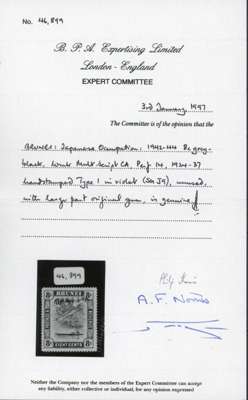 No. 46,899
B. P. A. Expertising Limited
London - England
EXPERT COMMITTEE
3rd January, 1997
The Committee is of the opinion that the
BRUNEI: Japanese Occupation: 1942-44 8c grey-
black, wmk Mult Script CA, Perf 14, 1924-37
handstamped Type 1 in violet (SG J9), unused,
with large part original gum, is genuine
46,899
BRUNEI
8c
8c
EIGHT CENTS
A. F. Norris
Neither the Company nor the members of the Expert Committee can accept
any liability, either collective or individual, for any opinion expressed